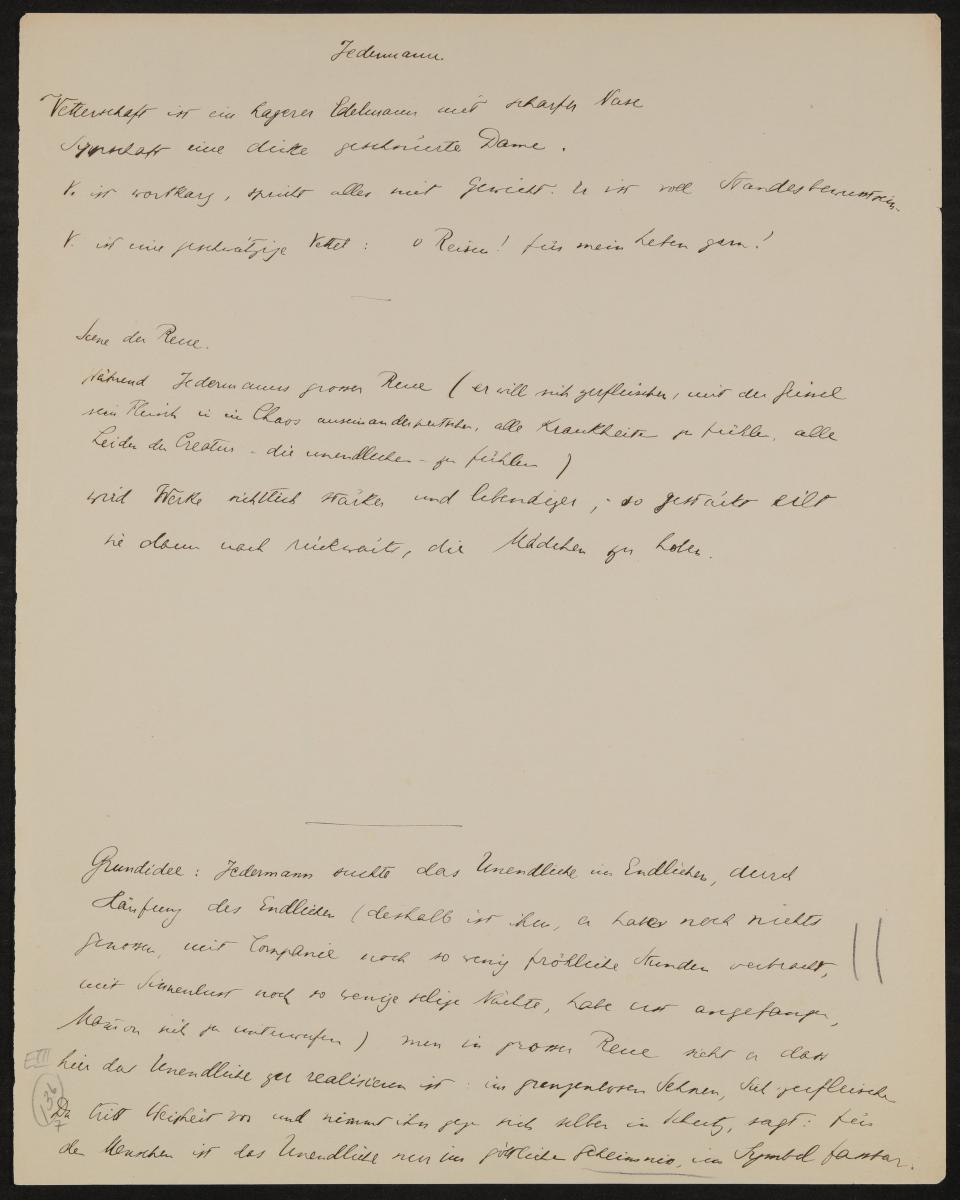 Jedermann.
Vetterschaft ist ein hagerer Edelmann mit scharfer Nase
Sippschaft eine dicke geschnürte Dame.
V. ist wortkarg, spricht alles mit Gewicht. Er ist voll Standesbewusstsein.
V. ist eine geschwätzige Vettel: o Reisen! für mein Leben gern!
Scene der Reue.
Während Jedermanns grosser Reue (er will sich zerfleischen, mit der Geissel
sein Fleisch in ein Chaos auseinanderpeitschen, alle Krankheiten zu fühlen, alle
Leiden der Creatur - die unendlichen - zu fühlen)
wird Werke sichtlich stärker und lebendiger, - so gestärkt eilt
sie dann nach rückwärts, die Mädchen zu holen.
Grundidee: Jedermann suchte das Unendliche im Endlichen, durch
Häufung des Endlichen (deshalb ist ihm, er habe noch nichts
genossen, mit Companie noch so wenig fröhliche Stunden verbracht,
mit Sinnenlust noch so wenige selige Nächte, habe erst angefangen,
Mammon sich zu unterwerfen) nun in grosser Reue sieht er dass
hier das Unendliche zu realisieren ist: im grenzenlosen Sehnen, Sich-zerfleischen
Da tritt Weisheit vor und nimmt ihn gegen sich selber in Schutz, sagt: für
den Menschen ist das Unendliche nur im göttlichen Geheimnis, im Symbol fassbar.
E III
136
7